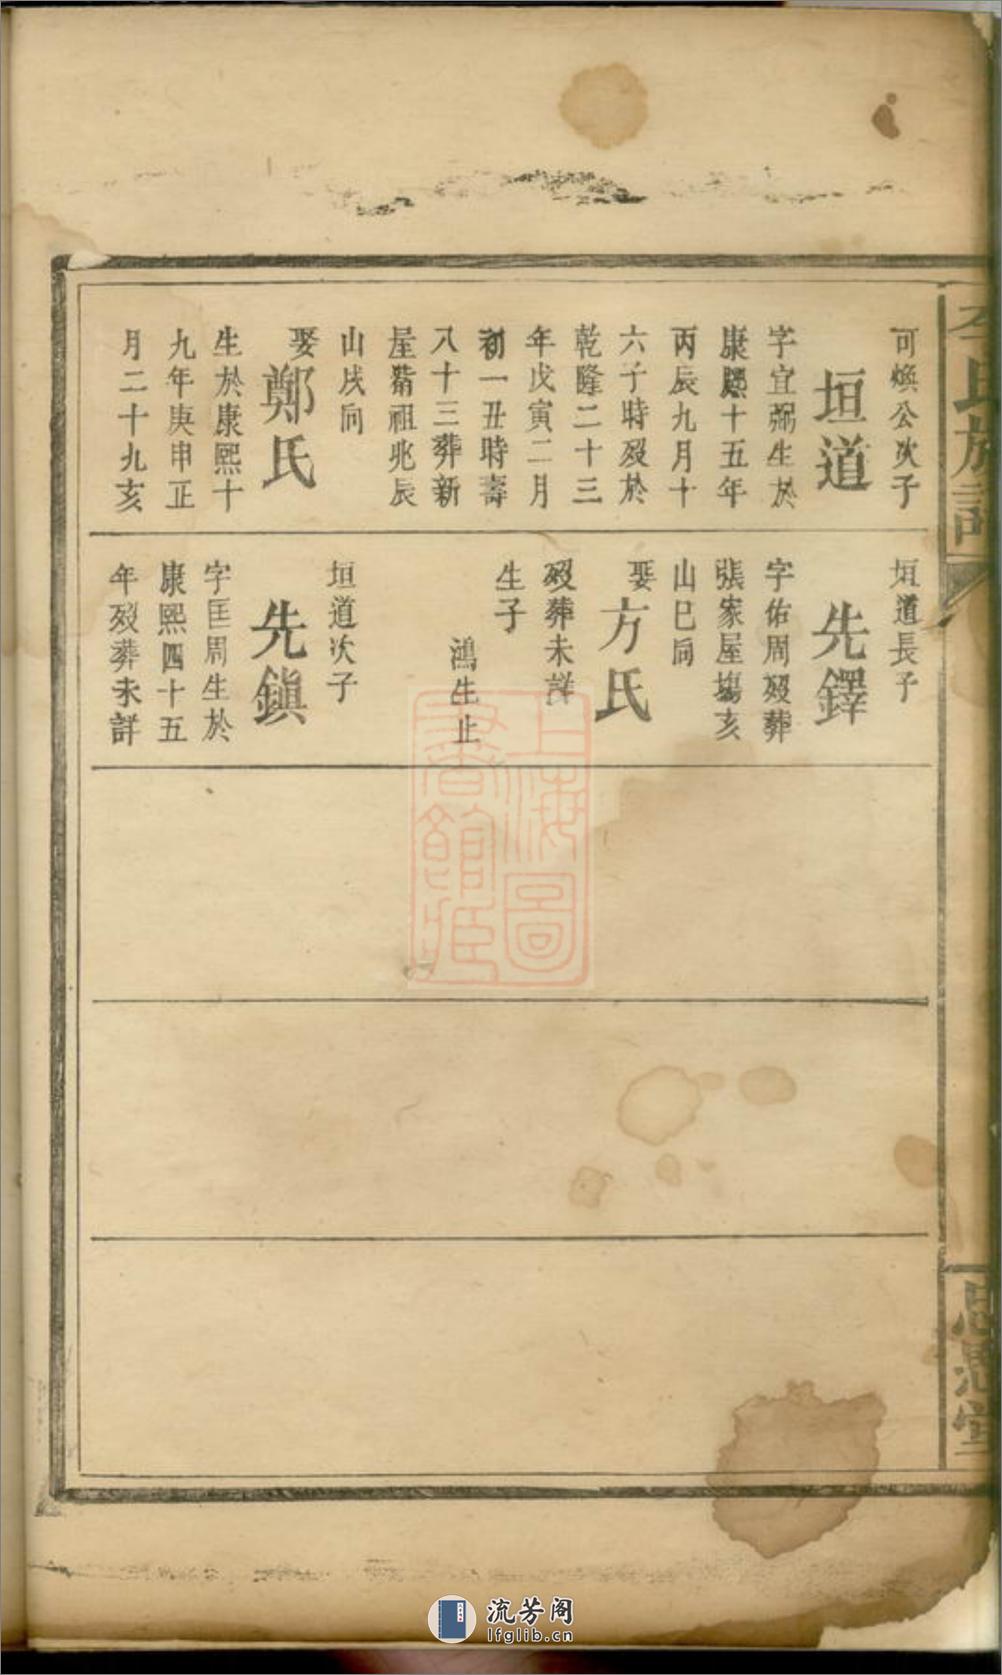 可煥公次子
垣道
字宜弼生於
康熙十五年
丙辰九月十
六子時歿於
乾隆二十三
年戊寅二月
初一丑時壽
八十三葬新
屋觜祖兆辰
山戌向
娶鄭氏
生於康熙十
九年庚申正
月二十九亥
垣道長子
先鐸
字佑周歿葬
張家屋塲亥
山巳向
娶方氏
歿葬未詳
生子
鴻生止
垣道次子
先鎮
字匡周生於
康熙四十五
年歿葬未詳
氏族譜
思愚堂
上海圖
書館藏
流芳阁
lfglib.cn